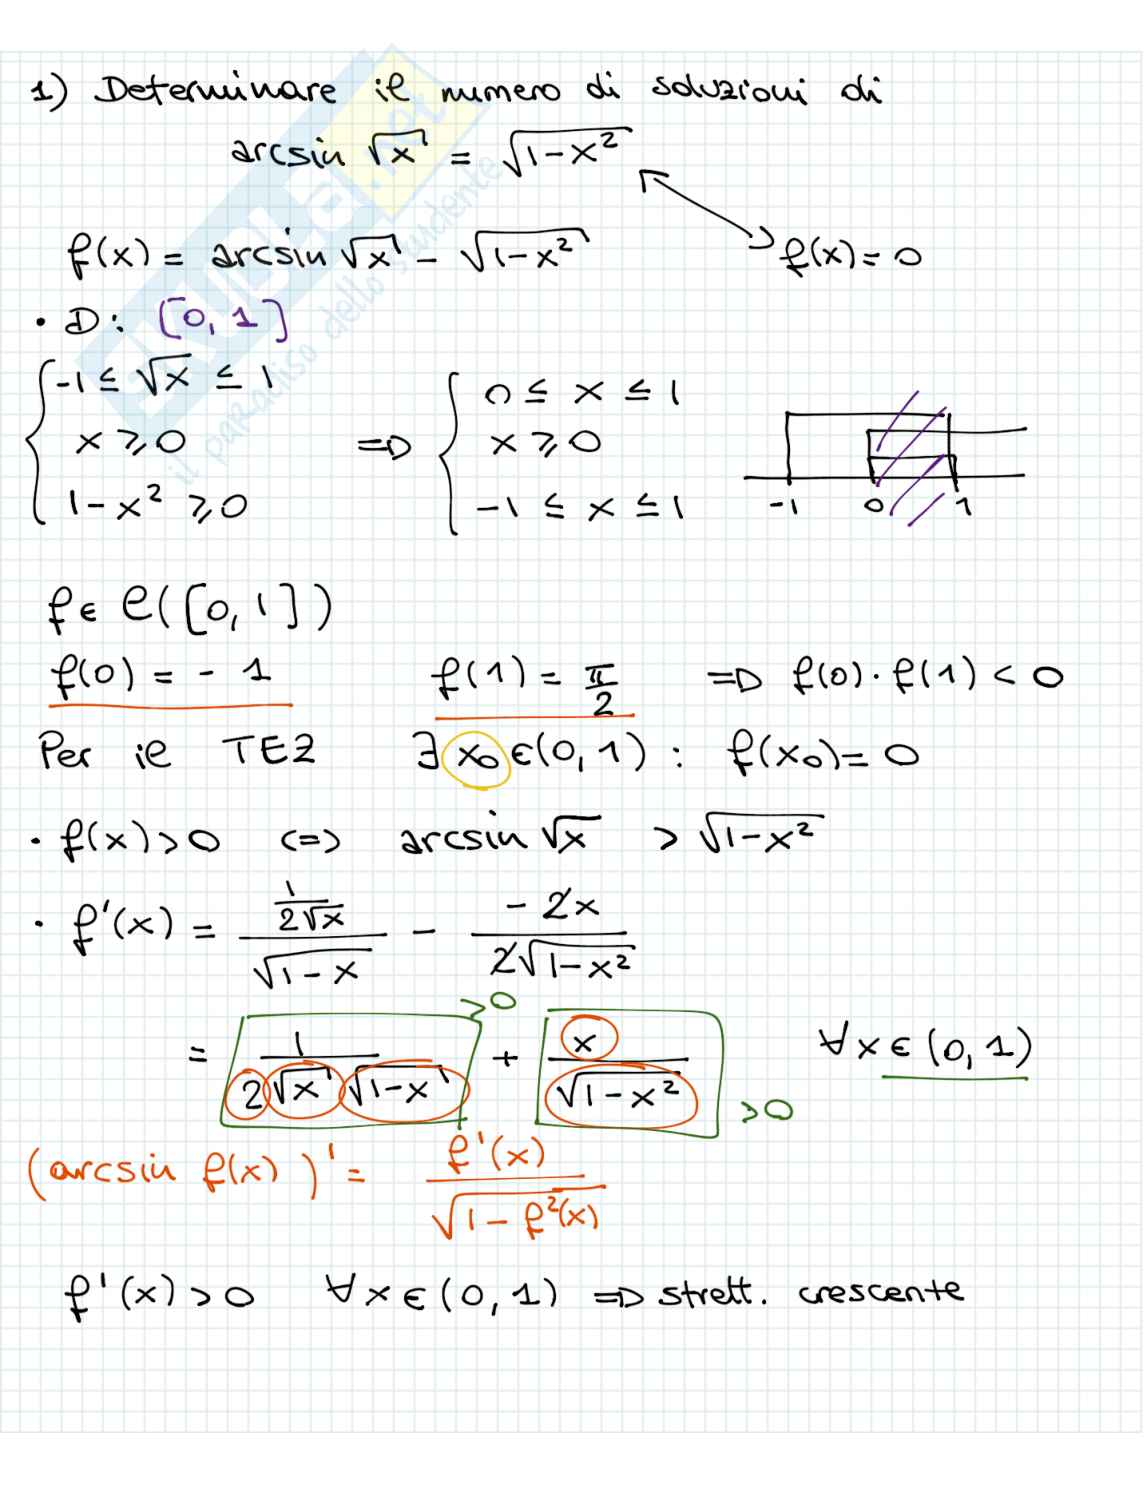 1) Determinare il numero di soluzioni di
arcsin √x = √(1-x²)
f(x) = arcsin √x - √(1-x²)   f(x) = 0
• D: [0, 1]
{ -1 ≤ √x ≤ 1   { 0 ≤ x ≤ 1
x ≥ 0   =>   x ≥ 0
1-x² ≥ 0   -1 ≤ x ≤ 1   -1 0 1
f ∈ C([0, 1])
f(0) = -1   f(1) = π/2   => f(0) · f(1) < 0
Per il TEZ   ∃ x₀ ∈ (0, 1) : f(x₀) = 0
• f(x) > 0 <=> arcsin √x > √(1-x²)
• f'(x) = (1/(2√x))/√(1-x) - (-2x)/(2√(1-x²))
= 1/(2√x √(1-x)) >0 + x/√(1-x²) >0   ∀x ∈ (0, 1)
(arcsin f(x))' = f'(x)/√(1-f²(x))
f'(x) > 0   ∀x ∈ (0, 1) => strett. crescente
SKUOLA.net
il paradiso dello studente